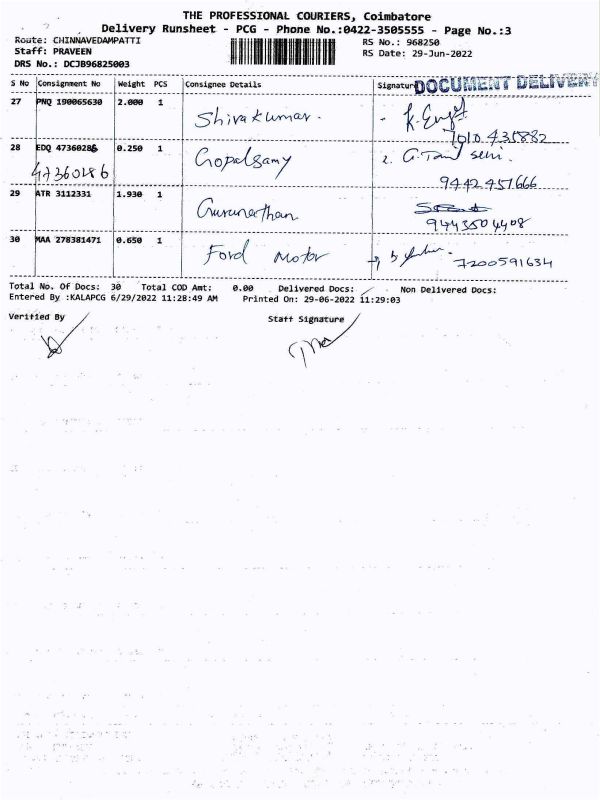 THE PROFESSIONAL COURIERS, Coimbatore
Delivery Runsheet - PCG - Phone No.:0422-3505555 - Page No.:3
Route: CHINNAVEDAMPATTI
Staff: PRAVEEN
DRS No.: DCJB96825003
RS No.: 968250
RS Date: 29-Jun-2022
S No Consignment No Weight PCS Consignee Details Signatur
DOCUMENT DELIVERY
27 PNQ 190065630 2.000 1 Shivakumar.
28 EDQ 47360286 0.250 1 Gopalsamy 2. G.
47360286 9442457666
29 ATR 3112331 1.930 1 Gurunathan
9443504408
30 MAA 278381471 0.650 1 Ford Motor 7200591634
Total No. Of Docs: 30 Total COD Amt: 0.00 Delivered Docs: Non Delivered Docs:
Entered By :KALAPCG 6/29/2022 11:28:49 AM Printed On: 29-06-2022 11:29:03
Verified By Staff Signature